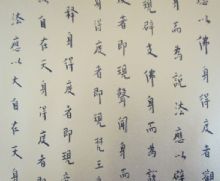 身得度者觀
身而為說法應以辟
現辟支佛身而為說
者即現聲聞身而為
得度者即現梵王
釋身得度者即現
自在天身得度者即現
法應以大自在天身